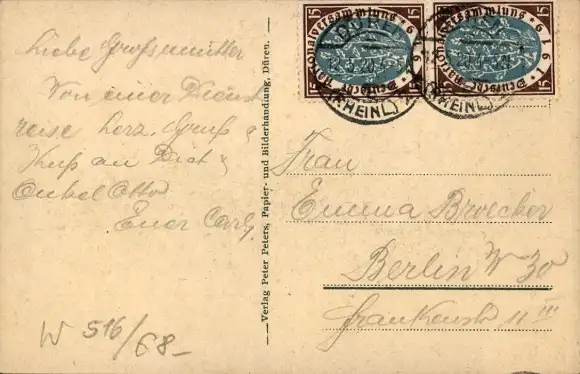 Liebe Großmutter
Von einer Dienst
reise herz. Gruß &
Kuß an Dich &
Onkel Otto
Euer Carl
W 516/68-
Verlag Peter Peters, Papier- und Bilderhandlung, Düren.
15 Deutsche Nationalversammlung 1919 15
15 Deutsche Nationalversammlung 1919 15
DÜREN
(RHEINL)
(RHEINL)
Frau
Emma Broecker
Berlin W 30
Frankenstr 11 III